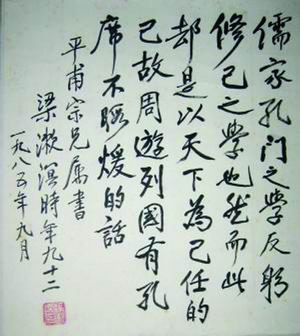 儒家孔門之學反躬
修己之學也然而此
却是以天下為己任的
已故周遊列國有孔
席不暇煖的話
平甫宗兄属書
梁漱溟時年九十二
一九八五年九月